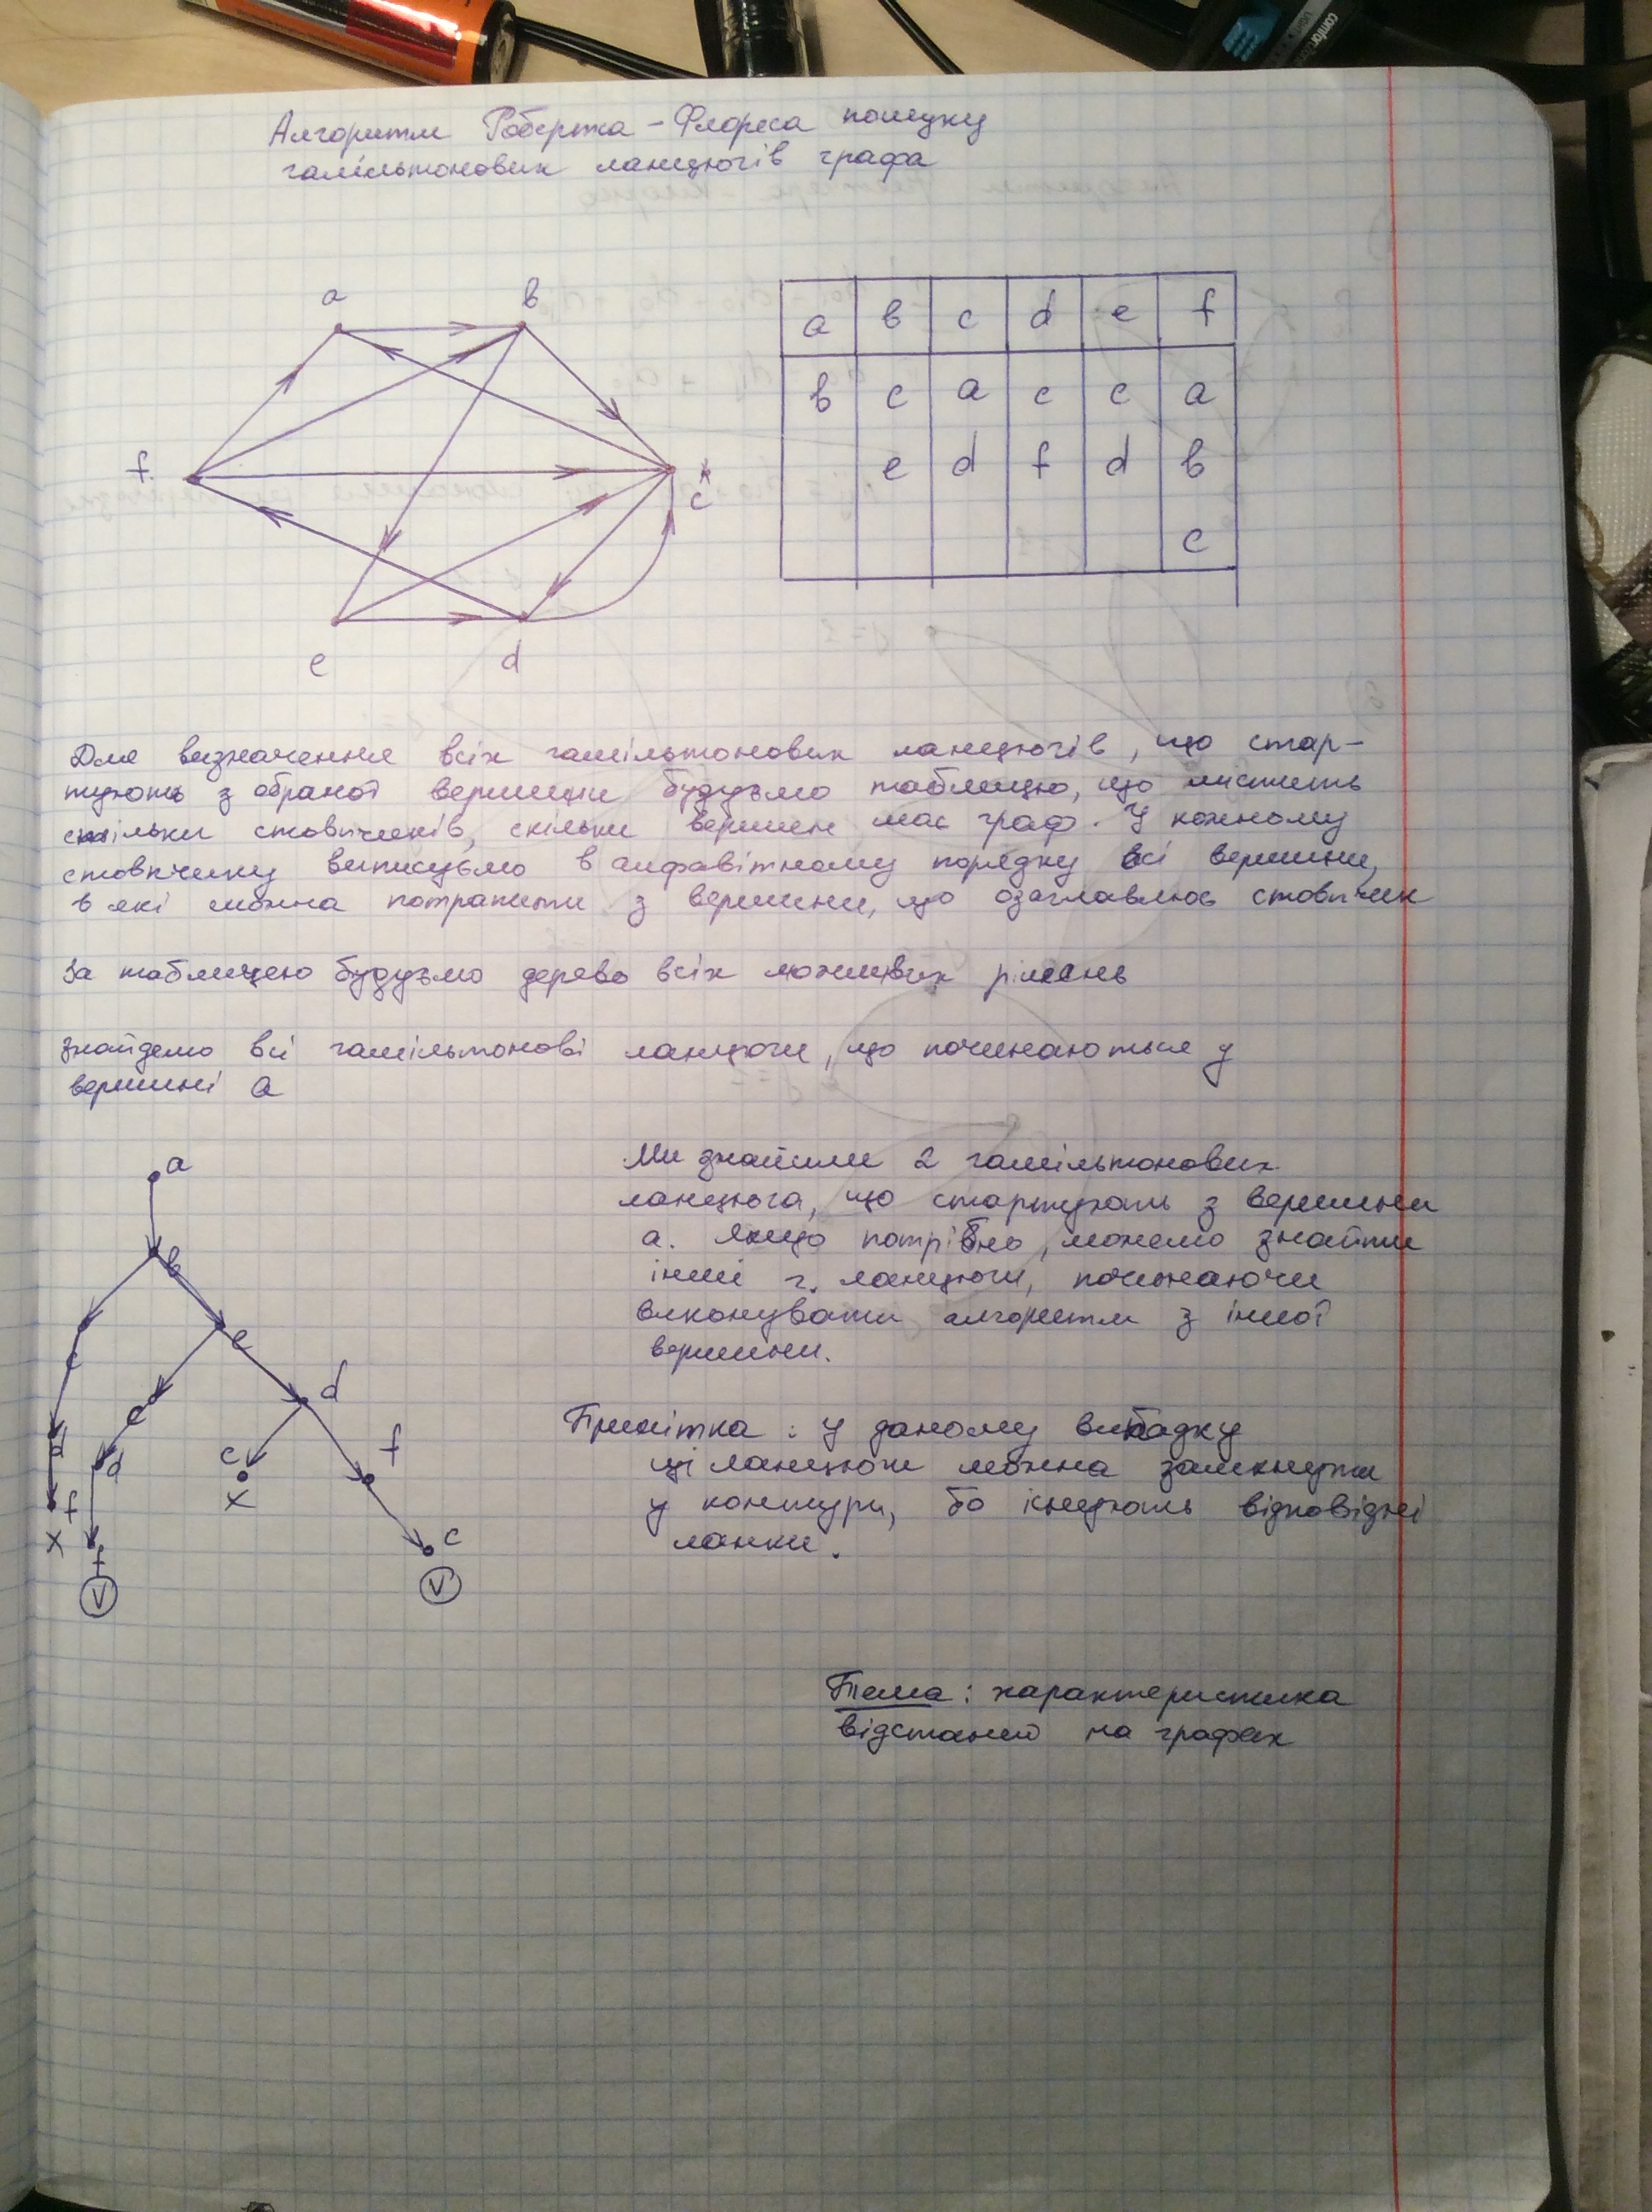 Алгоритм Робертса-Флореса пошуку
гамільтонових ланцюгів графа
a b
f c
e d
a b c d e f
b c a c c a
e d f d b
c
Для визначення всіх гамільтонових ланцюгів, що стар-
тують з обраної вершини будуємо таблицю, що містить
стільки стовпчиків, скільки вершин має граф. У кожному
стовпчику виписуємо в алфавітному порядку всі вершини,
в які можна потрапити з вершини, що озаглавлює стовпчик
За таблицею будуємо дерево всіх можливих рішень
Знайдемо всі гамільтонові ланцюги, що починаються у
вершині a
a
b
c e
d c d
f d c f
x f x c
V V
Ми знайшли 2 гамільтонових
ланцюга, що стартують з вершини
a. Якщо потрібно, можемо знайти
інші г. ланцюги, починаючи
виконувати алгоритм з іншої
вершини.
Примітка: У даному випадку
ці ланцюги можна замкнути
у контури, бо існують відповідні
ланки.
Тема: характеристика
відстаней на графах